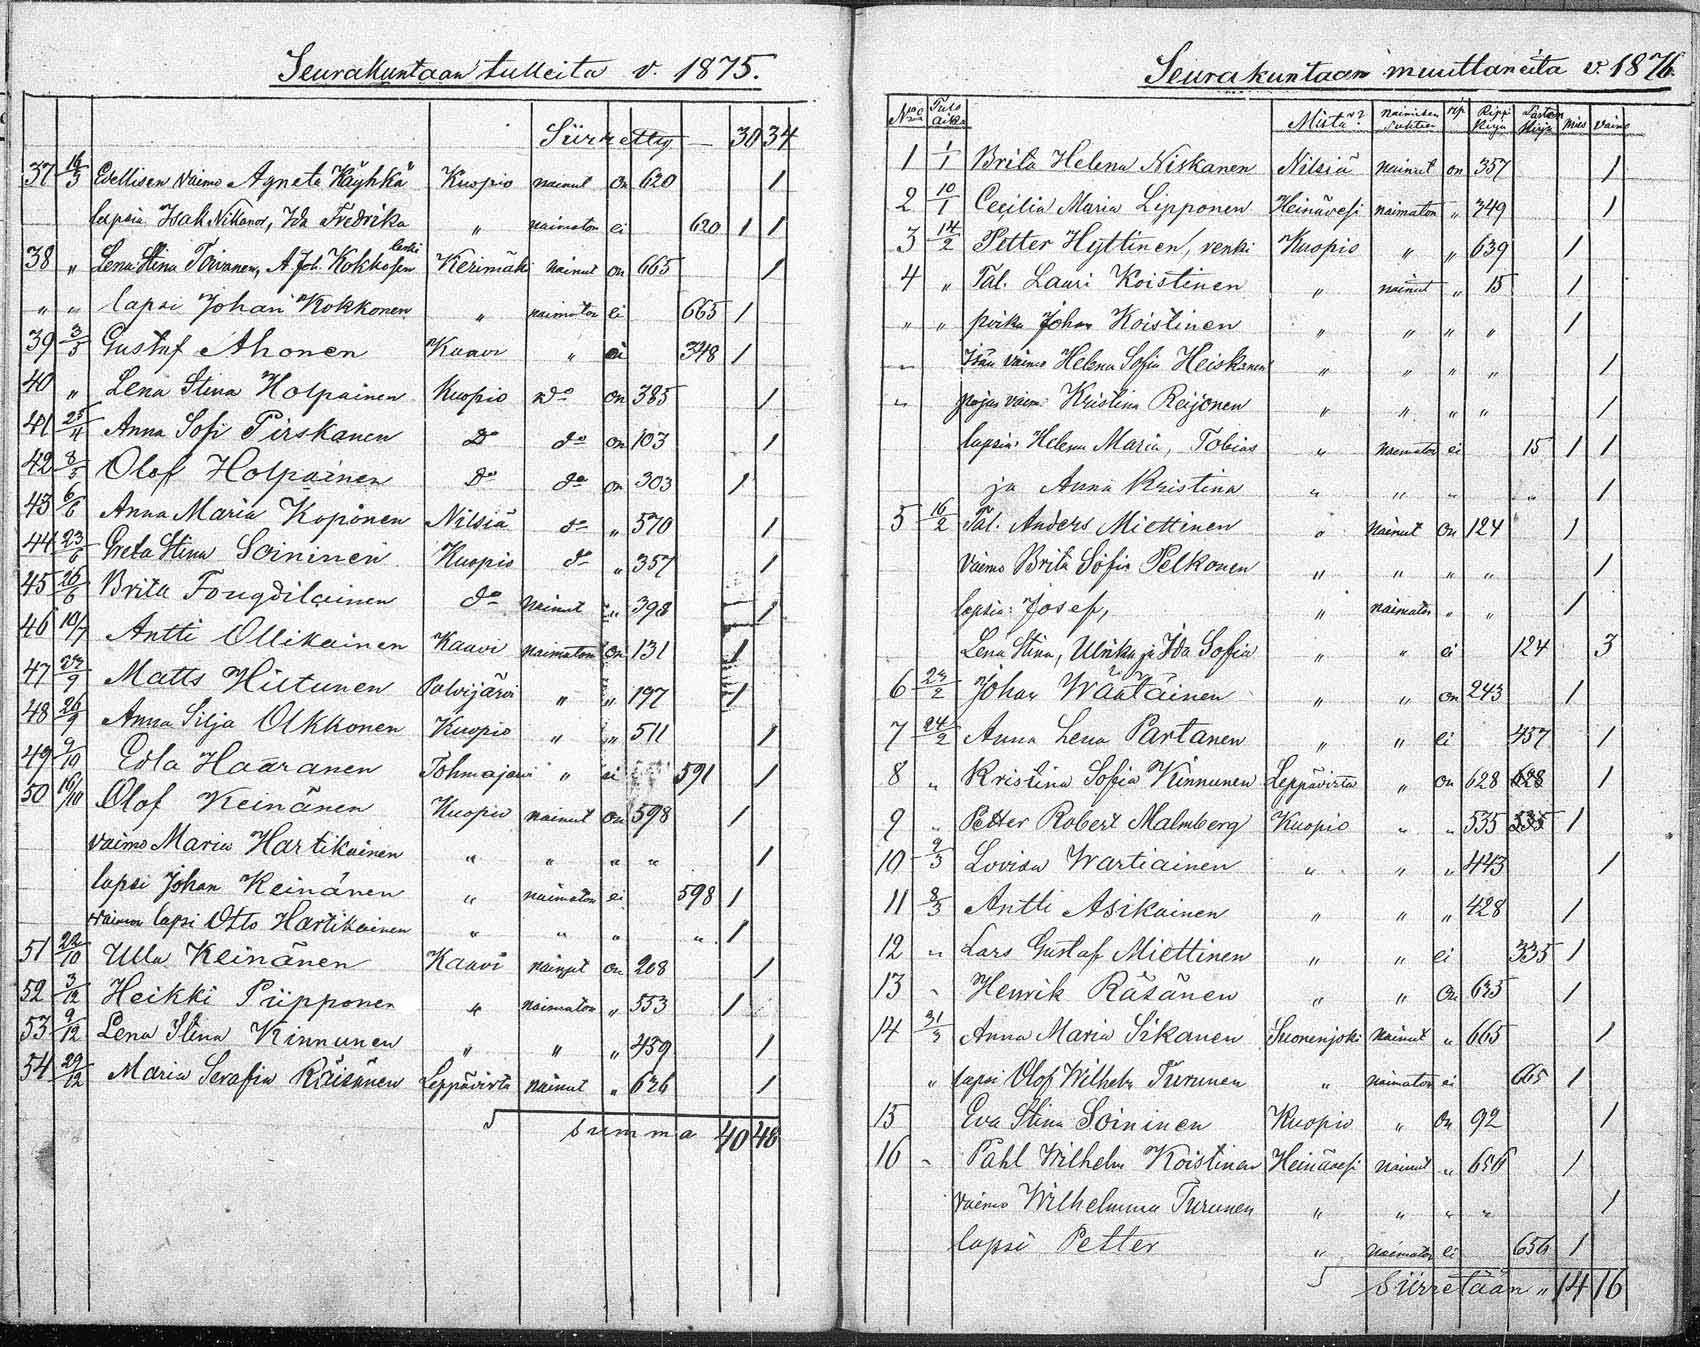 Seurakuntaan tulleita v. 1875.
Siirretty — 30 34
37 16/3 Edellisen vaimo Agneta Käyhkä Kuopio nainut on 620 1
lapsia Isak Nikanor, Ida Fredrika " naimaton ei 620 1 1
38 " Lena Stina Toivanen, A. Joh. Kokkosen leski Kerimäki nainut on 665 1
" " lapsi Johan Kokkonen " naimaton ei 665 1
39 3/5 Gustaf Ahonen Kaavi " ei 348 1
40 " Lena Stina Holpainen Kuopio do on 385 1
41 25/4 Anna Sofi Pirskanen Do do on 103 1
42 8/5 Olof Holpainen Do do on 303 1
43 6/6 Anna Maria Koponen Nilsiä do " 570 1
44 23/6 Greta Stina Soininen Kuopio do " 357 1
45 26/6 Brita do nainut " 398 1
46 10/7 Antti Ollikainen Kaavi naimaton on 131 1
47 23/9 Matts Hiltunen Polvijärvi " " 197 1
48 26/9 Anna Silja Olkkonen Kuopio " " 511 1
49 9/10 Edla Haaranen Tohmajärvi " ei 591 1
50 16/10 Olof Keinänen Kuopio nainut on 598 1
vaimo Maria Hartikainen " " " " 1
lapsi Johan Keinänen " naimaton ei 598 1
vaimon lapsi Otto Hartikainen " " " " 1
51 22/10 Ulla Keinänen Kaavi nainut on 208 1
52 3/12 Heikki Piipponen " naimaton " 553 1
53 9/12 Lena Stina Kinnunen " " " 459 1
54 29/12 Maria Serafia Räisänen Leppävirta nainut " 626 1
Summa 40 48
Seurakuntaan muuttaneita v. 1876.
No Tulo aika Mistä? naimisen suhteen rip. Rippi kirja Lasten kirja mies vaimo
1 1/1 Brita Helena Niskanen Nilsiä nainut on 357 1
2 10/1 Cecilia Maria Lipponen Heinävesi naimaton " 349 1
3 14/2 Petter Hyttinen, renki Kuopio " " 639 1
4 " Tal. Lauri Koistinen " nainut " 15 1
" " poika Johan Koistinen " " " " 1
" Isän vaimo Helena Sofia Heiskanen " " " " 1
" pojan vaim. Kristina Reijonen " " " " 1
lapsia: Helena Maria, Tobias " naimaton ei 15 1 1
ja Anna Kristina " " " " 1
5 16/2 Tal. Anders Miettinen " nainut on 124 1
vaimo Brita Sofia Pelkonen " " " " 1
lapsia: Josef, " naimaton " " 1
Lena Stina, Ulrika ja Ida Sofia " " ei 124 3
6 23/2 Johan Wäätäinen " " on 243 1
7 24/2 Anna Lena Partanen " " ei 457 1
8 " Kristina Sofia Kinnunen Leppävirta " on 628 628 1
9 " Petter Robert Malmberg Kuopio " " 535 535 1
10 9/3 Lovisa Wartiainen " " " 443 1
11 8/3 Antti Asikainen " " " 428 1
12 " Lars Gustaf Miettinen " " ei 335 1
13 " Henrik Räsänen " " on 635 1
14 31/3 Anna Maria Sikanen Suonenjoki nainut " 665 1
" lapsi Olof Wilhelm Turunen " naimaton ei 665 1
15 Eva Stina Soininen Kuopio " on 92 1
16 " Pahl Wilhelm Koistinen Heinävesi nainut " 656 1
vaimo Wilhelmina Turunen " " " " 1
lapsi Petter " naimaton ei 656 1
Siirretään " 14 16